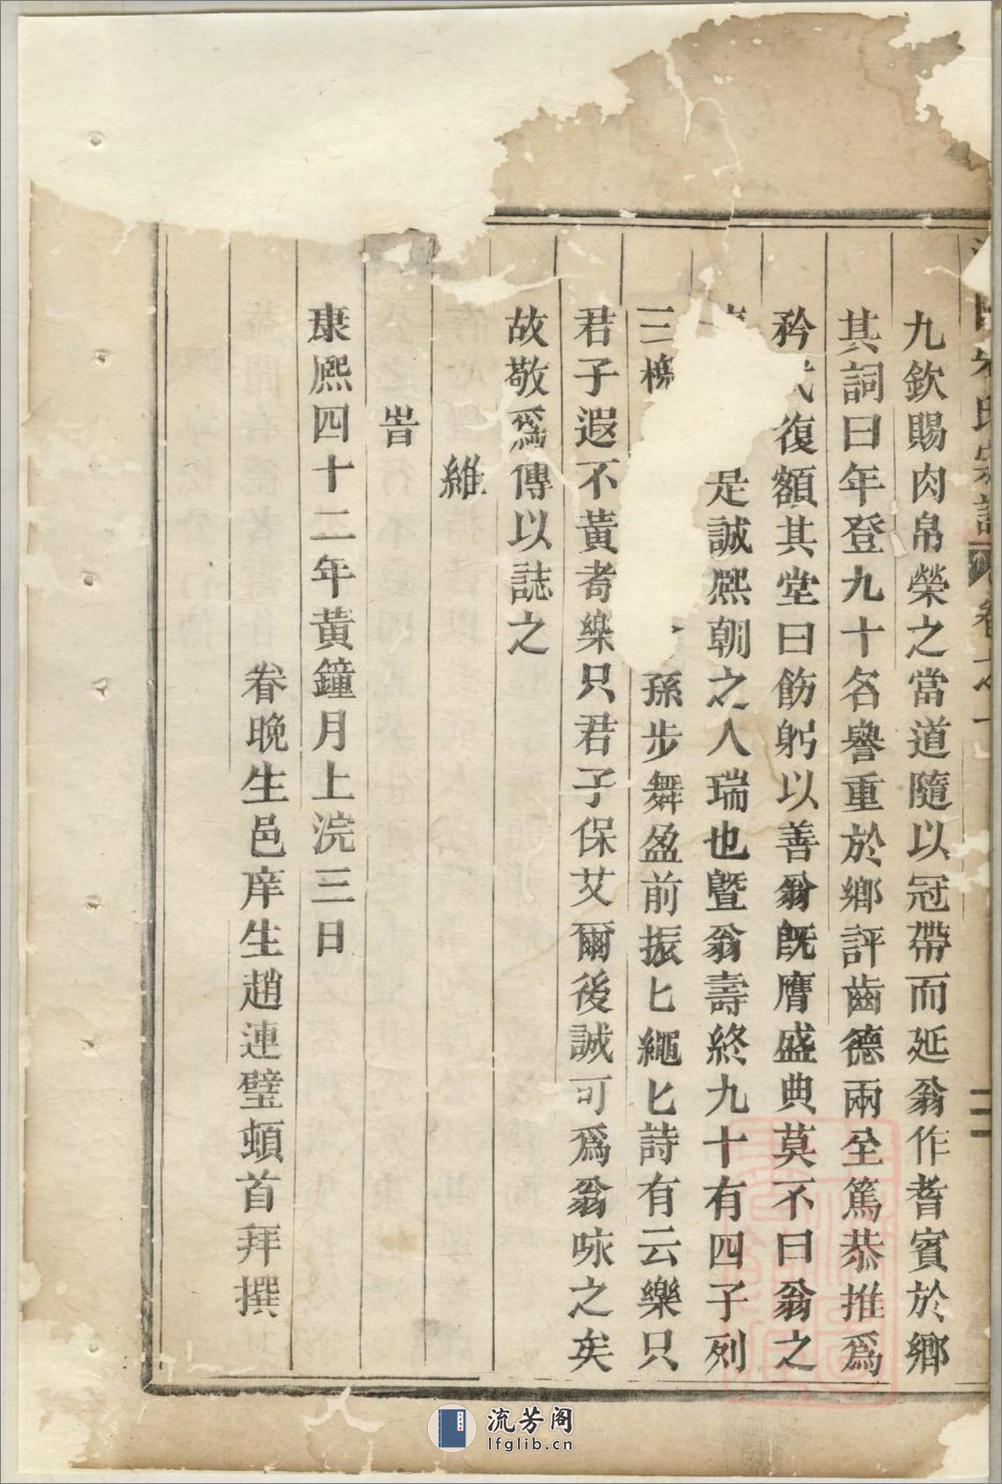 九欽賜肉帛榮之當道隨以冠帶而延翁作耆賓於鄉
其詞曰年登九十名譽重於鄉評齒德兩全篤恭推爲
矜式復額其堂曰飭躬以善翁既膺盛典莫不曰翁之
是誠熈朝之人瑞也曁翁壽終九十有四子列
三槐孫步舞盈前振匕繩匕詩有云樂只
君子遐不黃耉樂只君子保艾爾後誠可爲翁咏之矣
故敬爲傳以誌之
維
旹
康熈四十二年黃鐘月上浣三日
眷晚生邑庠生趙連璧頓首拜撰
氏宗譜
二
流芳阁
lfglib.cn